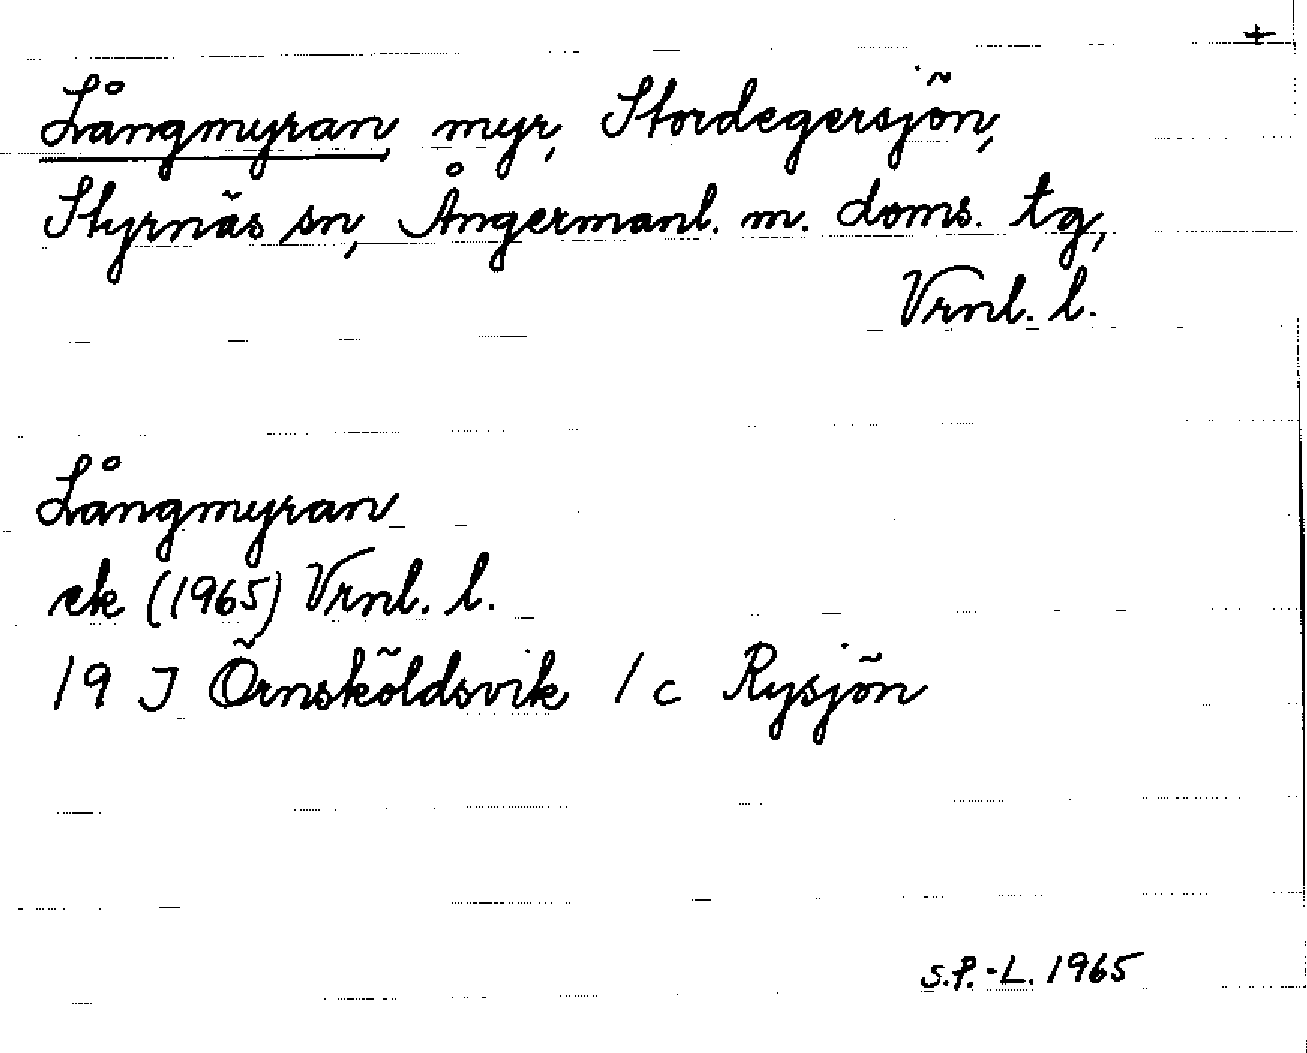 +
Långmyran myr, Stordegersjön,
Styrnäs sn, Ångermanl. m. doms. tg,
Vrnl. l.
Långmyran
ek (1965) Vrnl. l.
19 J Örnsköldsvik 1 c Rysjön
S.P.-L. 1965